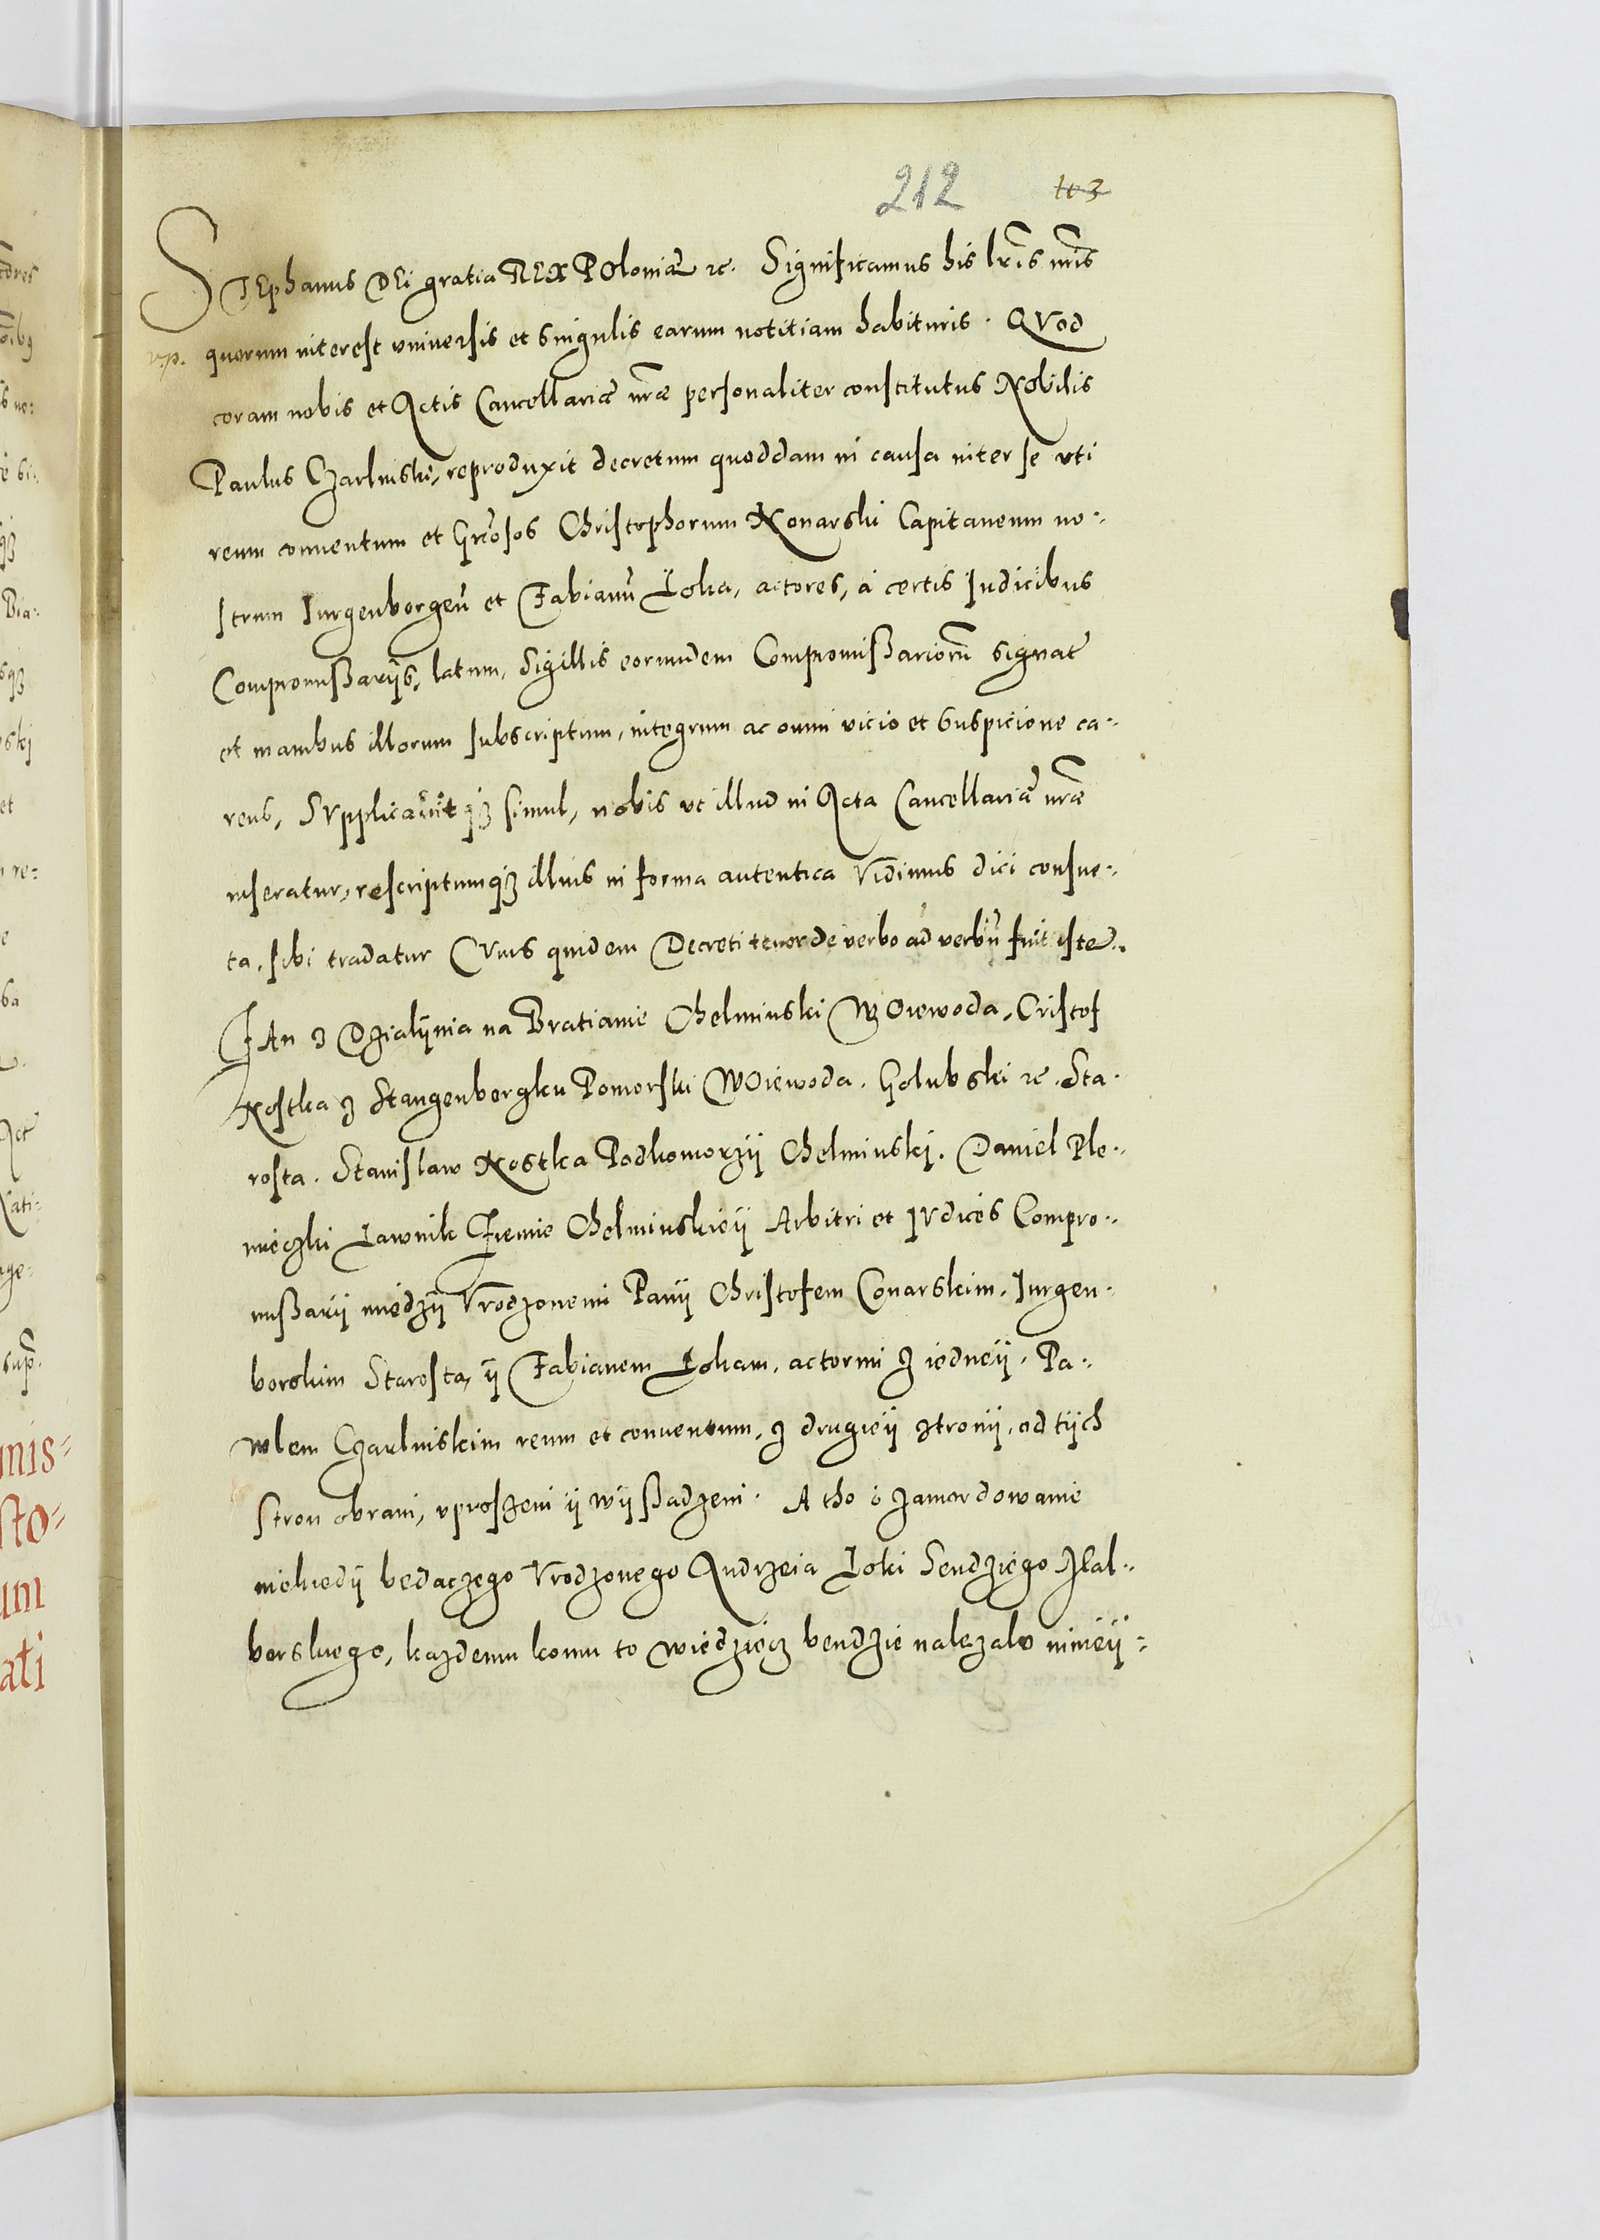 212
STEphanus DEi gratia REX POloniæ etc. Significamus his lr̃is nr̃is
quorum interest vniuersis et singulis earum notitiam habituris. QVod
coram nobis et Actis Cancellariæ nr̃æ personaliter constitutus Nobilis
Paulus Czarlinski, reproduxit decretum quoddam in causa inter se vti
reum conuentum et Gñosos Christophorum Konarski Capitaneum no-
strum Jurgenborgeñ et Fabianũ Loka, actores, a certis Judicibus
Compromißarijs, latum, Sigillis eorundem Compromißariorũ signat
et manibus illorum subscriptum, integrum ac omni vicio et suspicione ca-
rens, SVpplicauit qȝ simul, nobis vt illud in Acta Cancellariæ nr̃æ
inseratur, rescriptumqȝ illius in forma autentica Vidimus dici consue-
ta, sibi tradatur CVius quidem Decreti tenor de verbo ad verbũ fuit iste.
JAn z Dzialÿnia na Bratianie Chelminski WOiewoda, Cristof
Kostka z Stangenbergku Pomorski WOiewoda. Golubski etc. Sta-
rosta. Stanislaw Kostka Podkomorzÿ Chelminskj. Daniel Ple-
mięczki Lawnik Ziemie Chelminskieÿ Arbitri et JVdices Compro-
mißarij międzÿ Vrodzonemi Panÿ Christofem Conarskim, Jurgen-
borskim Starostą, ÿ Fabianem Lokam, actormi z iedneÿ. Pa-
wlem Czarlinskim reum et conuentum, z drugieÿ ztronÿ, od tÿch
stron obrani, vproszeni ÿ wÿßadzeni. A tho o zamordowanie
niekiedÿ bedaczego Vrodzonego Andrzeia Loki Sendziego Mal-
borskiego, kazdemu komu to wiedziecz bendzie nalezalo ninieÿ-